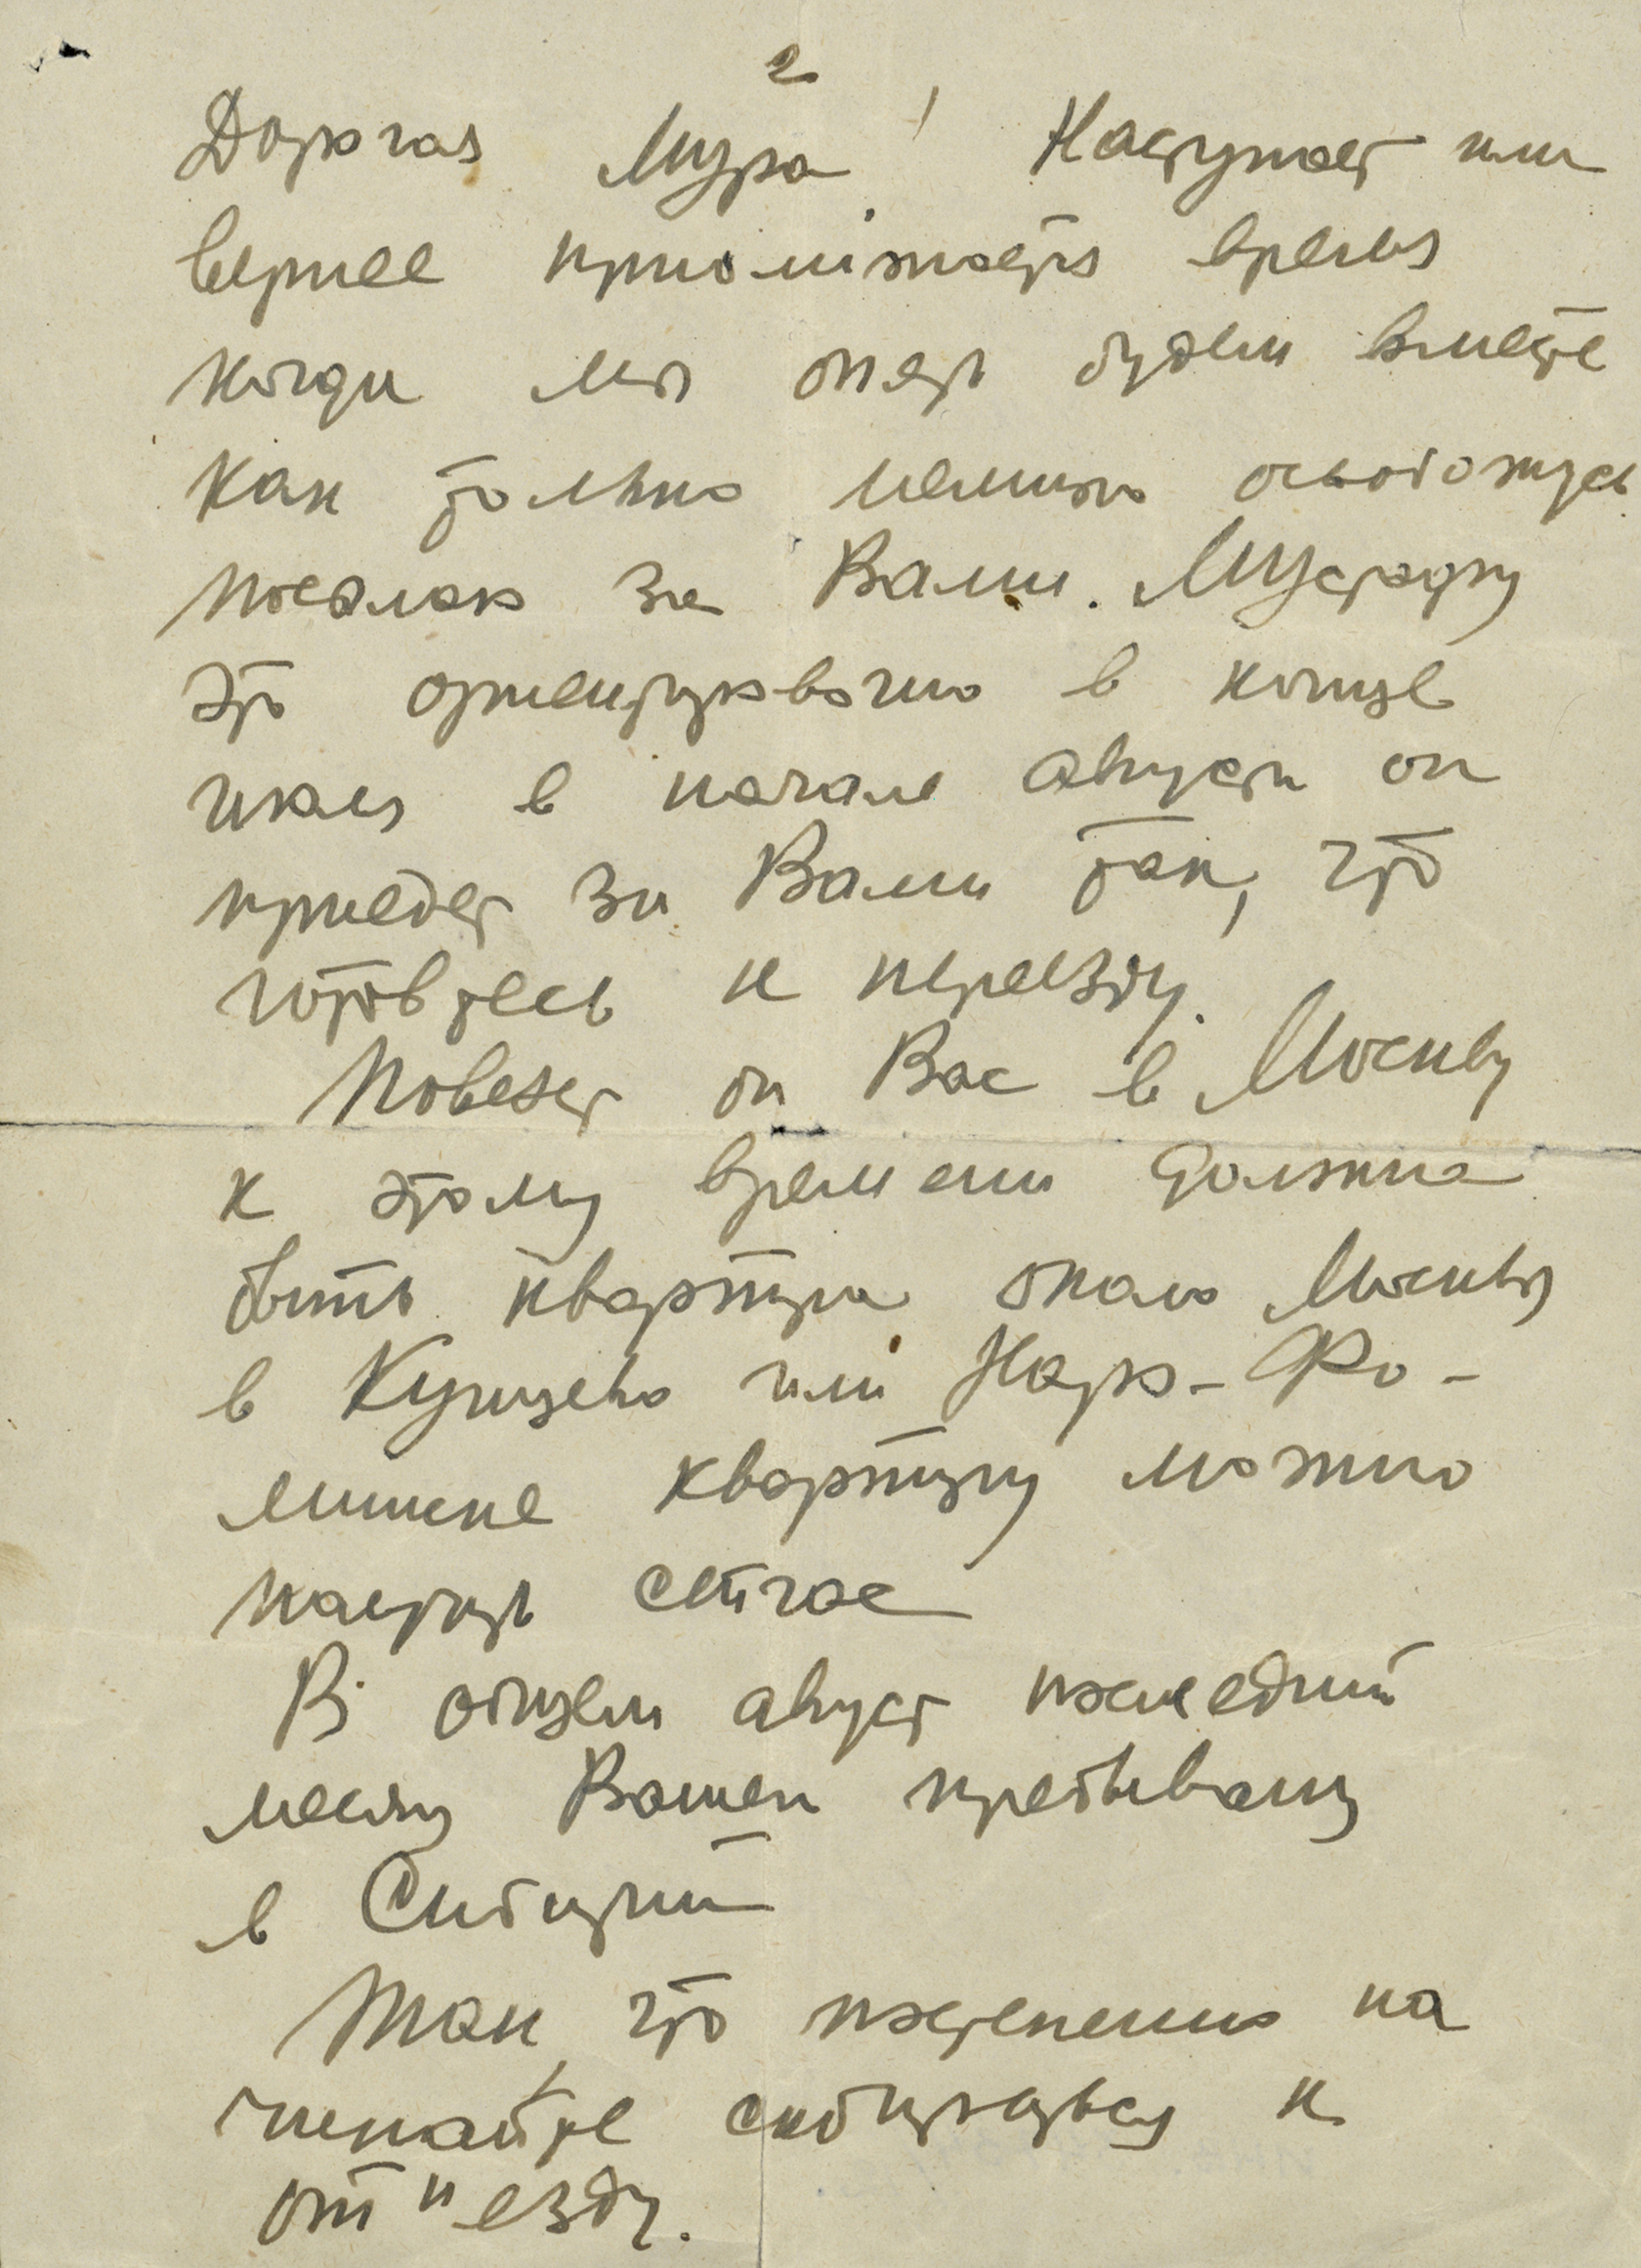 2
Дорогая Мура! Наступает или
вернее приближается время
когда мы опять будем вместе
Как только немного освобожусь
пошлю за Вами. Мустафу
это ориентировочно в конце
июля в начале августа он
приедет за Вами так, что
готовьтесь к переезду.
Повезет он Вас в Москву
к этому времени должна
быть квартира около Москвы
в Кунцево или Наро-Фо-
минске квартиру можно
сейчас
В общем август последний
месяц Вашего пребывания
в Сибири
Так, что постепенно на
чинайте собираться к
от"езду.